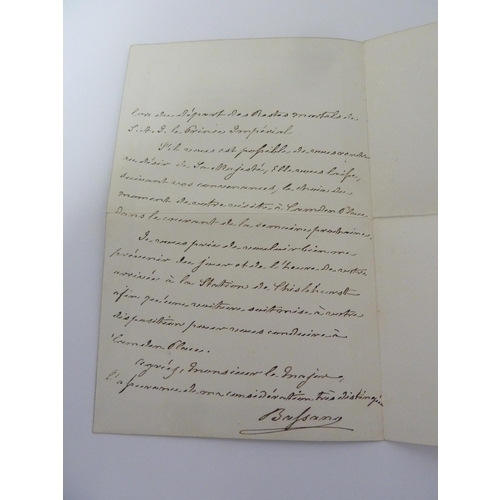 lors du départ des Restes mortels de
S. A. I. le Prince Impérial
S'il vous est possible de vous rendre
au désir de Sa Majesté, Elle vous laisse,
suivant vos convenances, le choix du
moment de votre visite à Camden Place
dans le courant de la semaine prochaine.
Je vous prie de vouloir bien me
prévenir du jour et de l'heure de votre
arrivée à la Station de Chislehurst
afin qu'une voiture soit mise à votre
disposition pour vous conduire à
Camden Place.
Agréez, Monsieur le Major,
l'assurance de ma considération très distinguée
Bassano